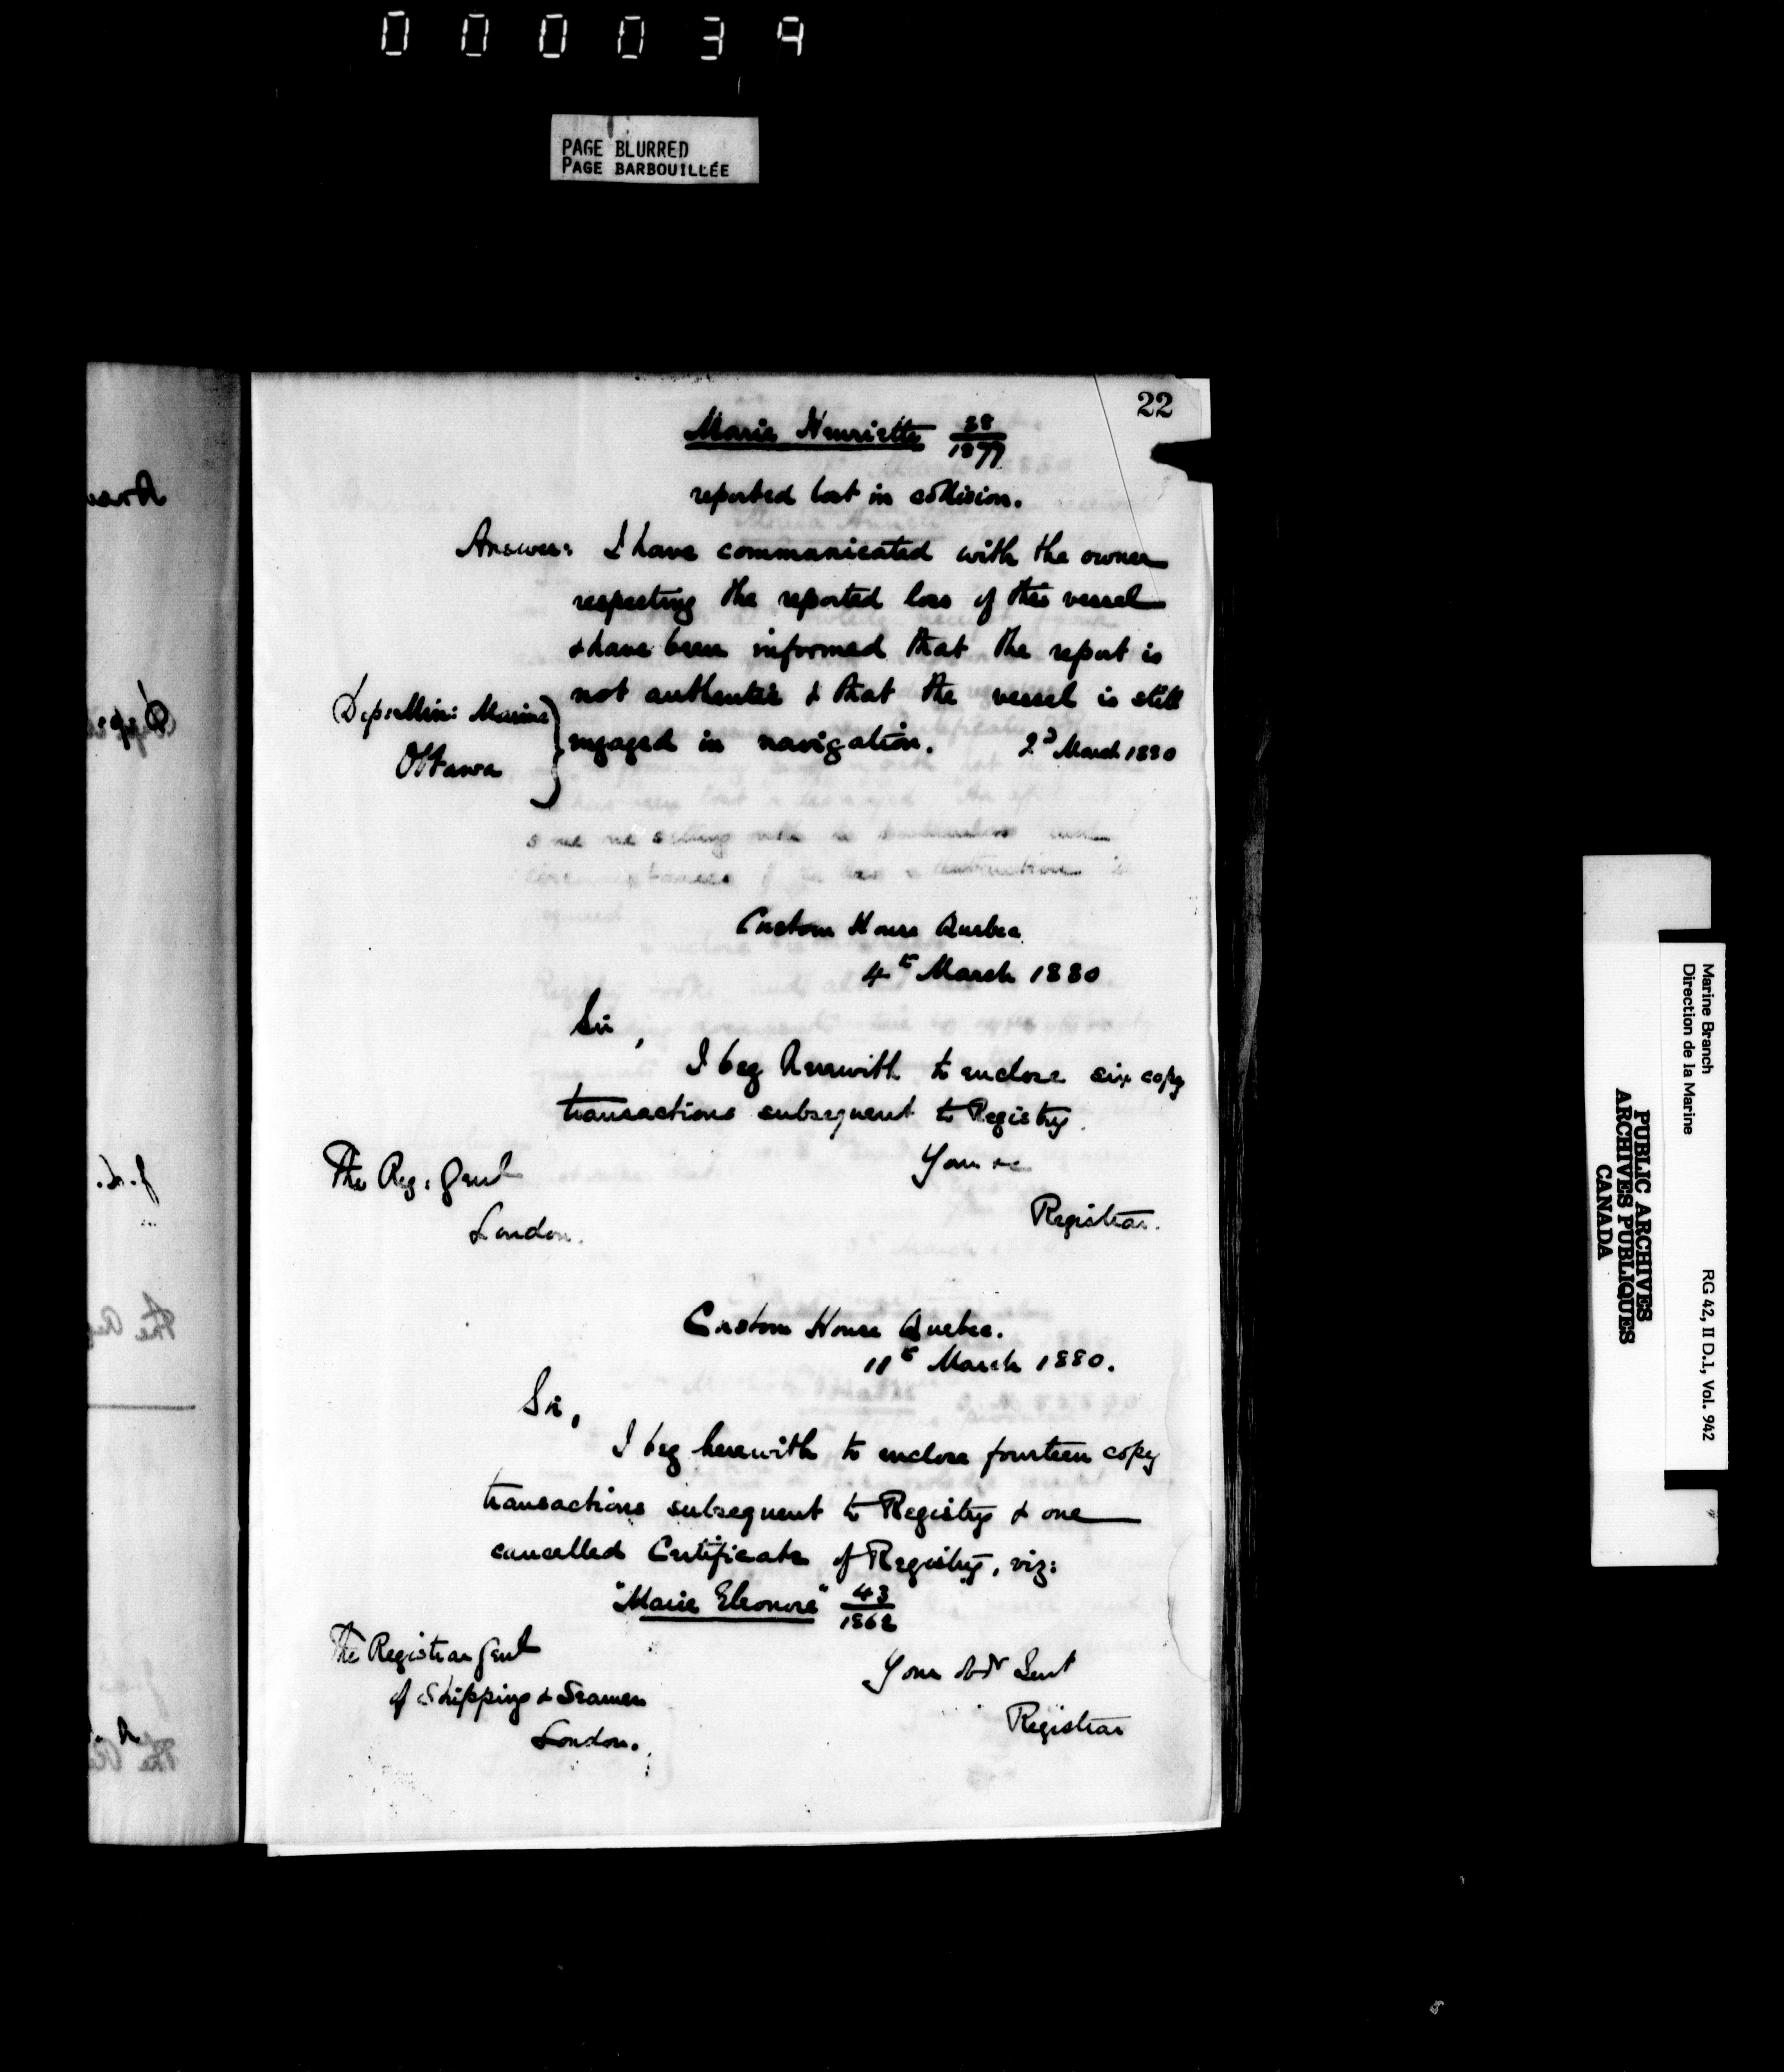 000039
PAGE BLURRED
PAGE BARBOUILLÉE
22
Marie Henriette 38/1877
reported lost in collision.
Answer: I have communicated with the owner
respecting the reported loss of this vessel
& have been informed that the report is
not authentic & that the vessel is still
engaged in navigation. 2d March 1880
Dep: Min: Marine
Ottawa
Custom House Quebec
4th March 1880
Sir,
I beg herewith to enclose six copy
transactions subsequent to Registry.
Your &c
The Reg: Genl
London.
Registrar.
Custom House Quebec.
11th March 1880.
Sir,
I beg herewith to enclose fourteen copy
transactions subsequent to Registry & one
cancelled Certificate of Registry, viz:
"Marie Eleonore" 43/1862
The Registrar Genl
of Shipping & Seamen
London.
Your Obt Servt
Registrar
Marine Branch
Direction de la Marine
RG 42, II D.1, Vol. 942
PUBLIC ARCHIVES
ARCHIVES PUBLIQUES
CANADA